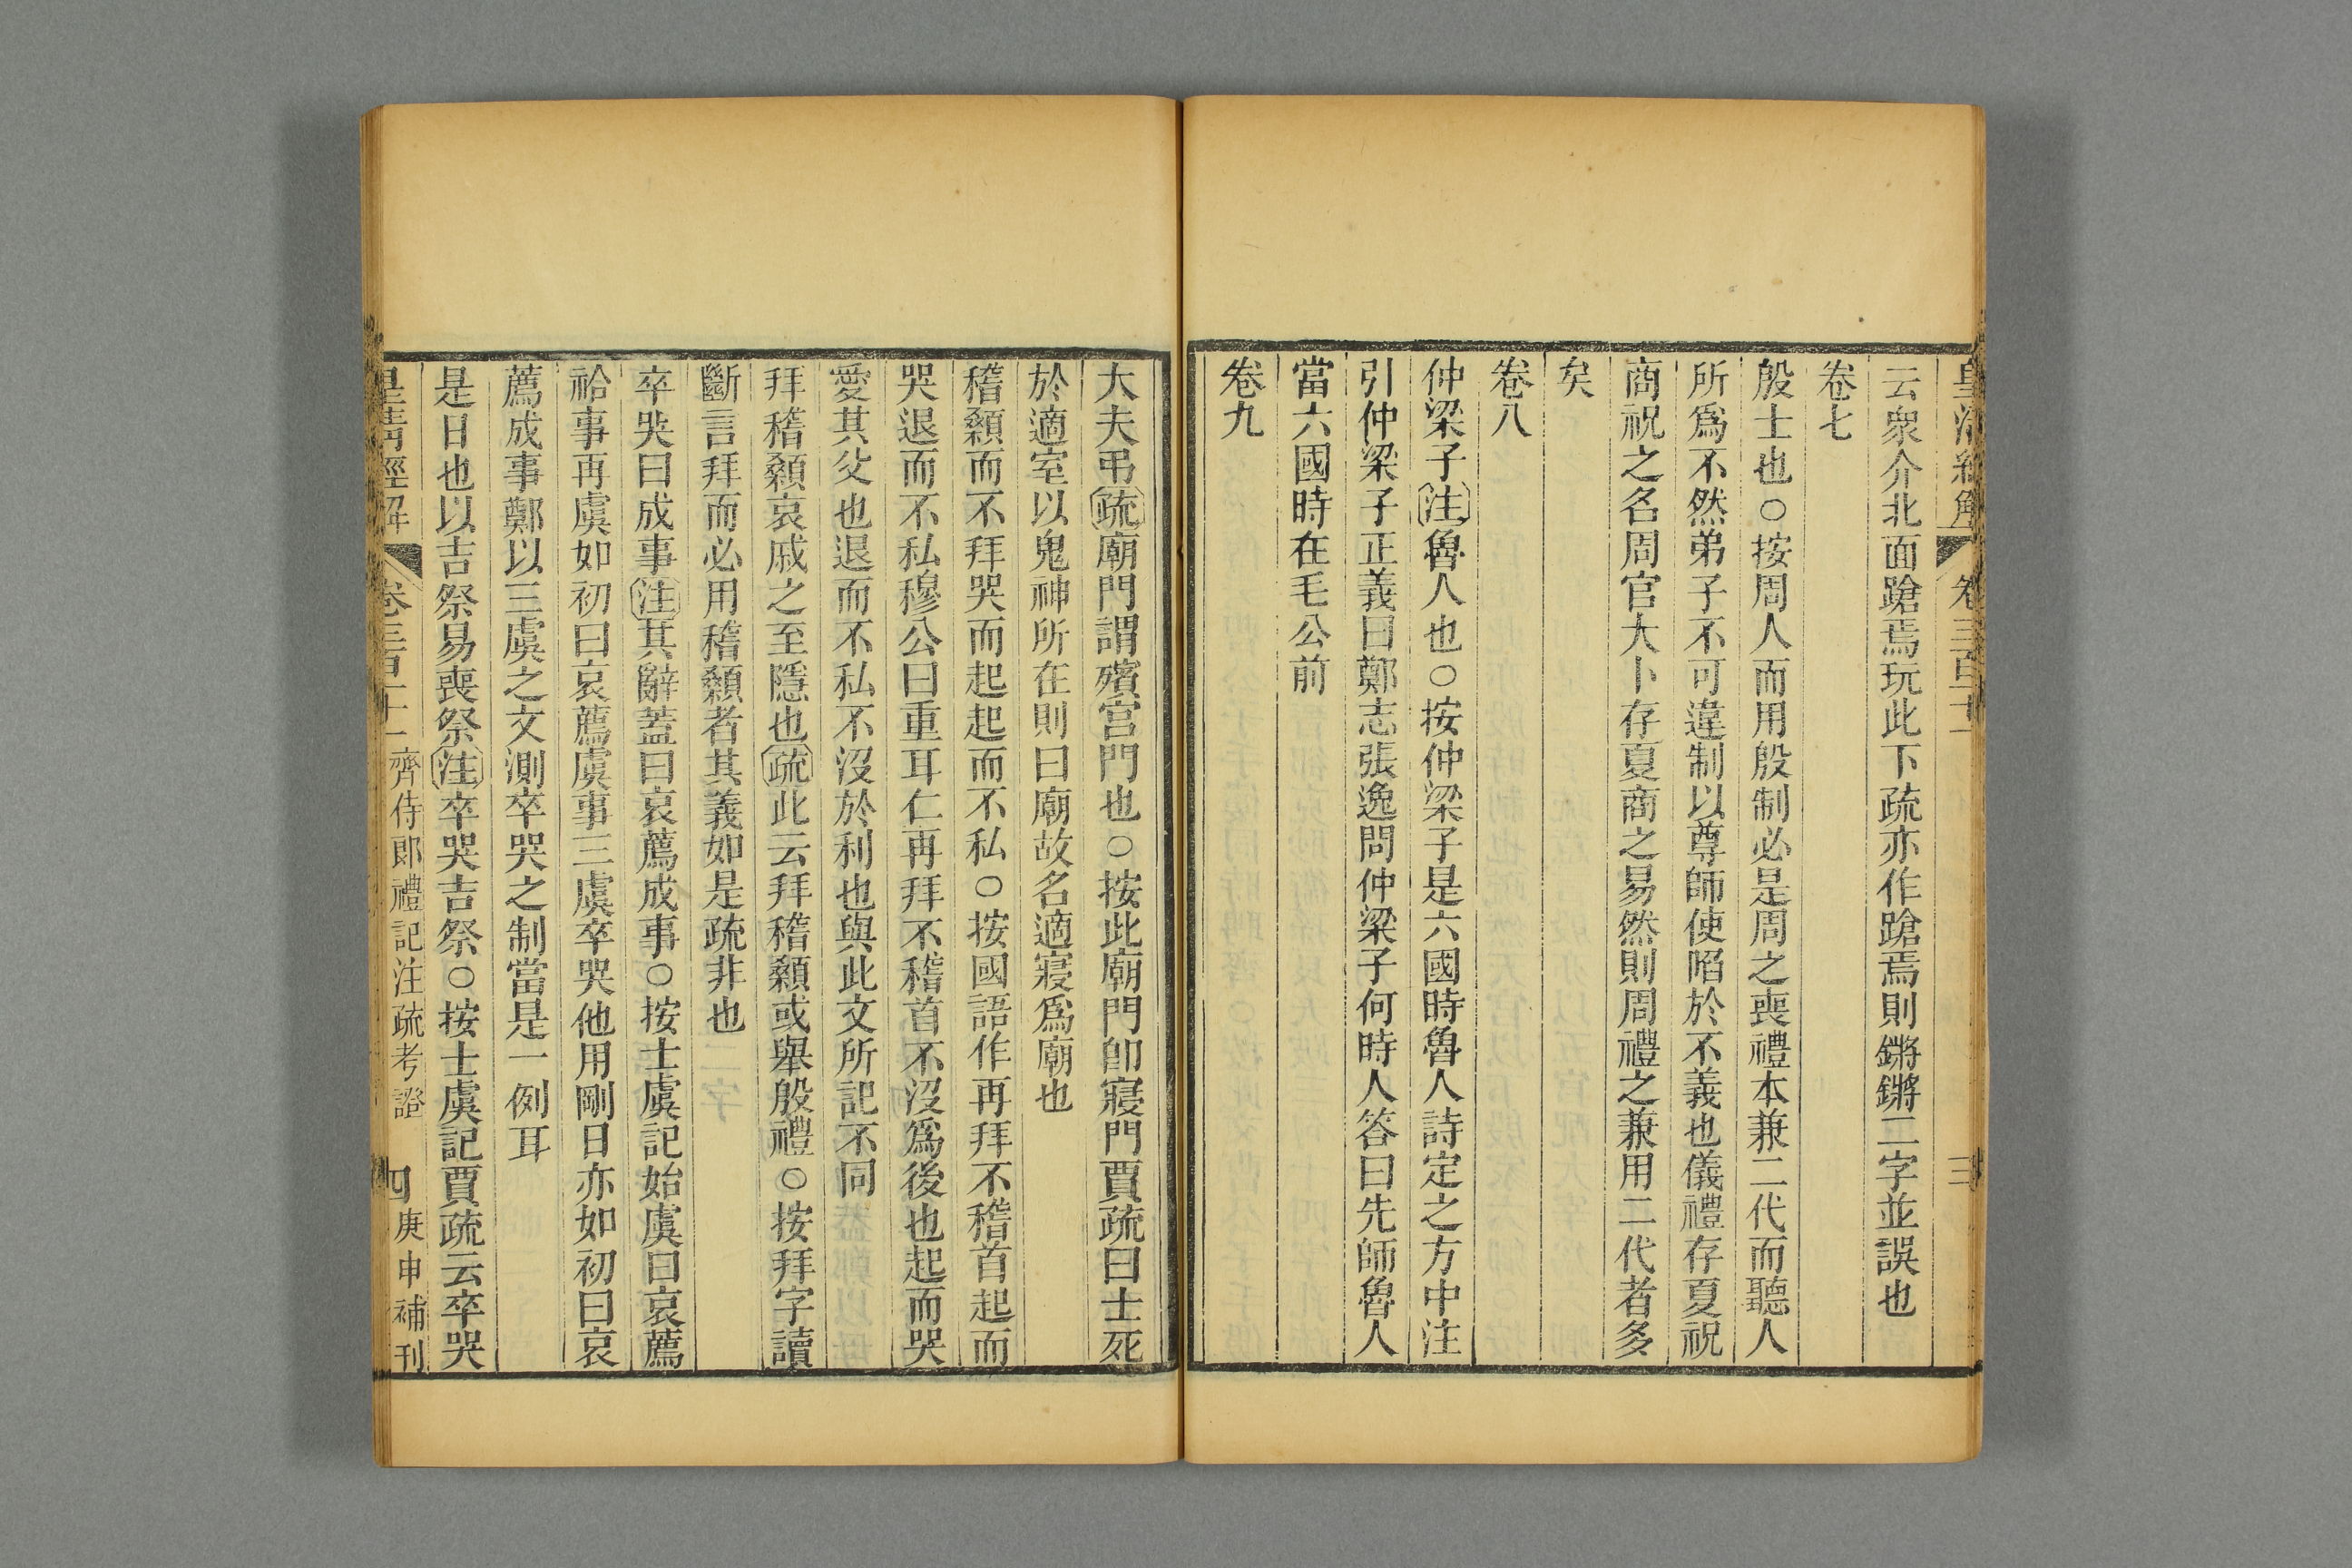 皇清經解 卷三百十一 三
云衆介北面蹌焉玩此下疏亦作蹌焉則鏘鏘二字並誤也
卷七
殷士也○按周人而用殷制必是周之喪禮本兼二代而聽人
所爲不然弟子不可違制以尊師使陷於不義也儀禮存夏祝
商祝之名周官大卜存夏商之易然則周禮之兼用二代者多
矣
卷八
仲梁子注魯人也○按仲梁子是六國時魯人詩定之方中注
引仲梁子正義曰鄭志張逸問仲梁子何時人答曰先師魯人
當六國時在毛公前
卷九
大夫弔疏廟門謂殯宮門也○按此廟門卽寢門賈疏曰士死
於適室以鬼神所在則曰廟故名適寢爲廟也
稽顙而不拜哭而起起而不私○按國語作再拜不稽首起而
哭退而不私穆公曰重耳仁再拜不稽首不沒爲後也起而哭
愛其父也退而不私不沒於利也與此文所記不同
拜稽顙哀戚之至隱也疏此云拜稽顙或舉殷禮○按拜字讀
斷言拜而必用稽顙者其義如是疏非也
卒哭曰成事注其辭蓋曰哀薦成事○按士虞記始虞曰哀薦
祫事再虞如初曰哀薦虞事三虞卒哭他用剛日亦如初曰哀
薦成事鄭以三虞之文測卒哭之制當是一例耳
是日也以吉祭易喪祭注卒哭吉祭○按士虞記賈疏云卒哭
皇淸經解 卷三百十一 齊侍郎禮記注疏考證 四 庚申補刊